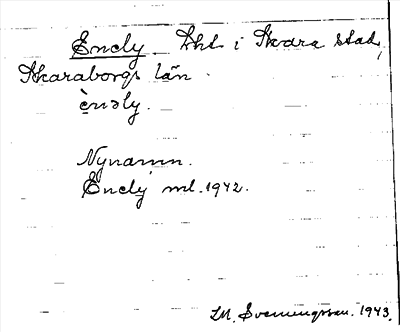 Enely lht. i Skara stad,
Skaraborgs län.
è̱nəly.
Nynamn.
Enely ml. 1942.
I.M. Svenningsson. 1943.